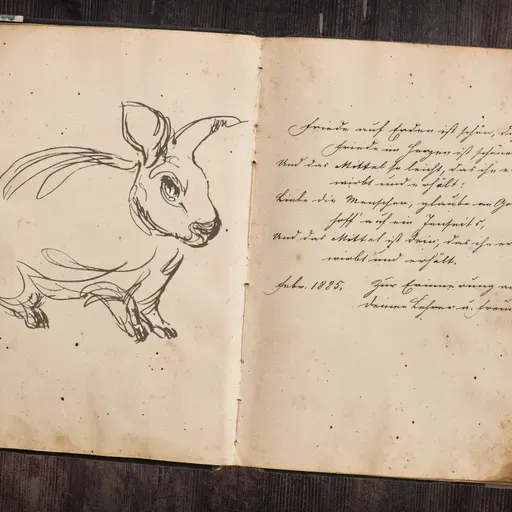 Friede auf Erden ist schön, d
Friede im Herzen ist schöne
Und das Mittel so leicht, das ihn e
wirbt und erhält:
Liebe die Menschen, glaube an Go
hoff' auf ein Jenseits,
Und das Mittel ist dein, das ihn er
wirbt und erhält.
Febr. 1895. Zur Erinnerung a
deinen Lehrer u. Freun